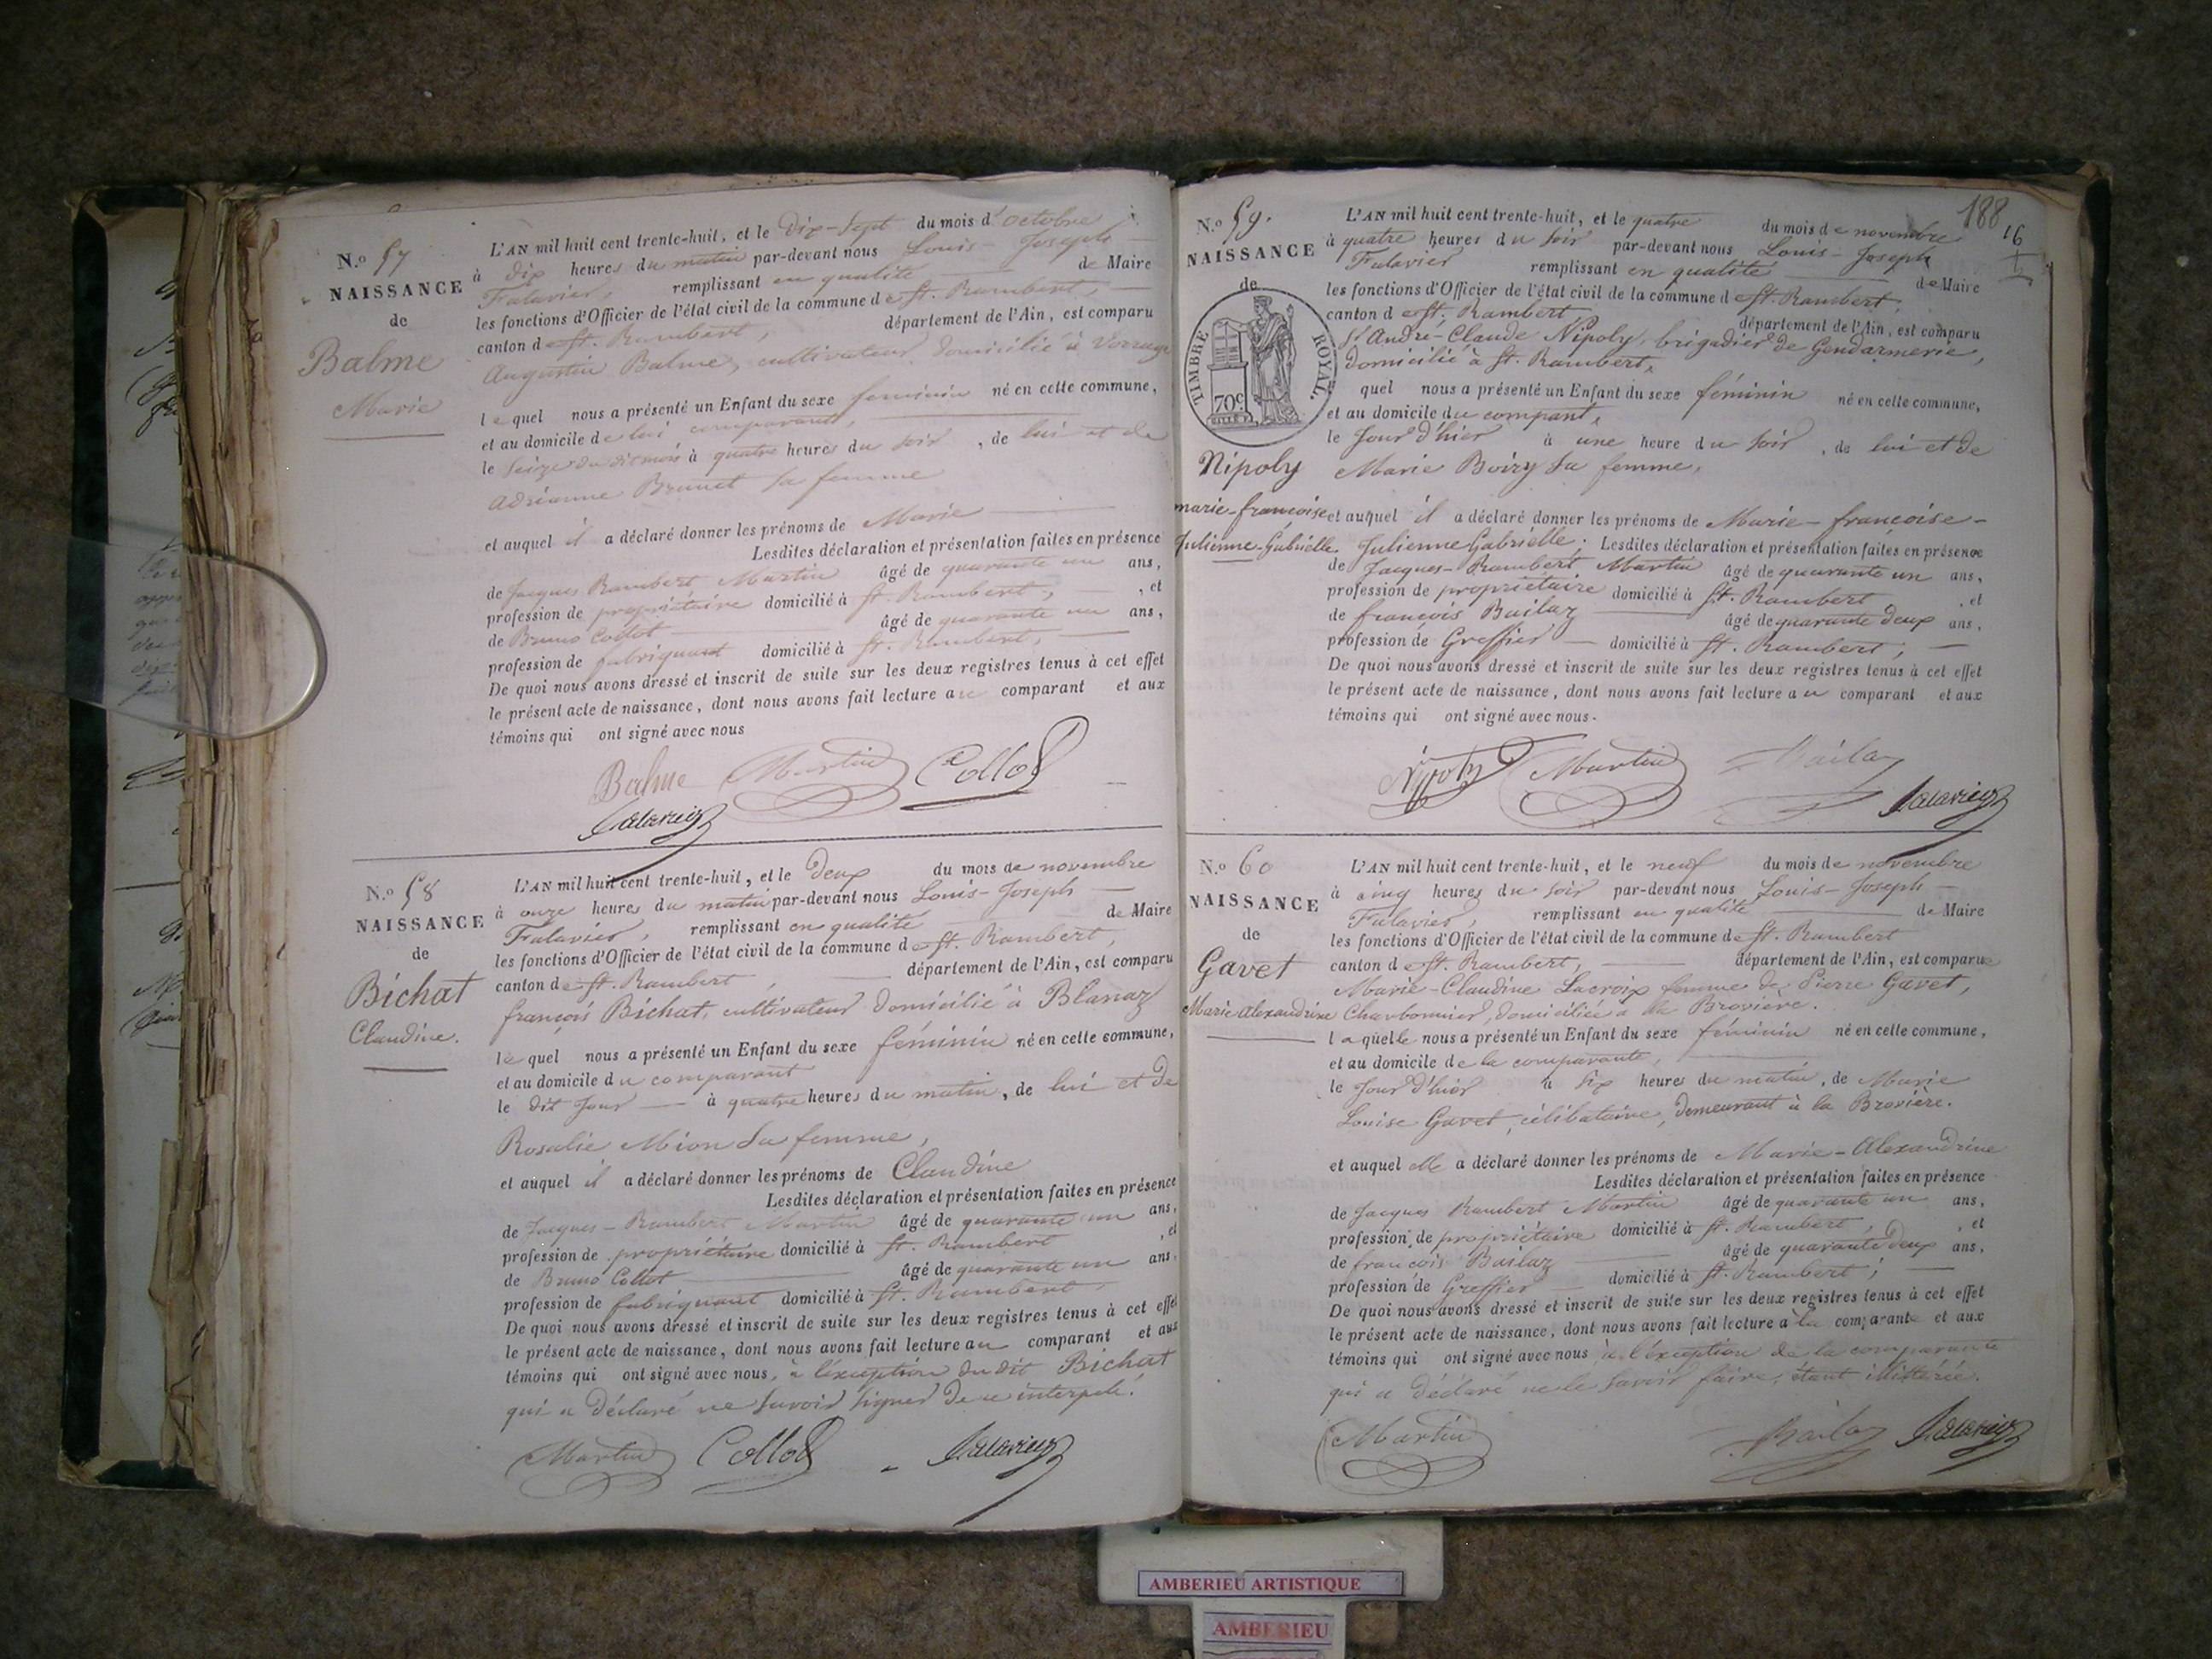 N.o 57
NAISSANCE
de
Balme
Marie
L'AN mil huit cent trente-huit, et le dix-sept du mois d'octobre
à dix heures du matin par-devant nous Louis-Joseph
Falavier, remplissant en qualité de Maire
les fonctions d'Officier de l'état civil de la commune de St. Rambert,
canton de St. Rambert, département de l'Ain, est comparu
Augustin Balme, cultivateur domicilié à
lequel nous a présenté un Enfant du sexe feminin né en cette commune,
et au domicile de lui comparant,
le seize du dit mois à quatre heures du soir, de lui et de
adrianne Brunet sa femme
et auquel il a déclaré donner les prénoms de Marie
Lesdites déclaration et présentation faites en présence
de Jacques Rambert Martin âgé de quarante un ans,
profession de propriétaire domicilié à St. Rambert, et
de Bruno Collot âgé de quarante un ans,
profession de fabriquant domicilié à St. Rambert,
De quoi nous avons dressé et inscrit de suite sur les deux registres tenus à cet effet
le présent acte de naissance, dont nous avons fait lecture au comparant et aux
témoins qui ont signé avec nous
Balme Martin Collot
Falavier
N.o 58
NAISSANCE
de
Bichat
Claudine.
L'AN mil huit cent trente-huit, et le deux du mois de novembre
à onze heures du matin par-devant nous Louis-Joseph
Falavier, remplissant en qualité de Maire
les fonctions d'Officier de l'état civil de la commune de St. Rambert,
canton de St. Rambert, département de l'Ain, est comparu
françois Bichat, cultivateur domicilié à Blanaz
lequel nous a présenté un Enfant du sexe féminin né en cette commune,
et au domicile du comparant
le dit jour à quatre heures du matin, de lui et de
Rosalie Mion sa femme,
et auquel il a déclaré donner les prénoms de Claudine
Lesdites déclaration et présentation faites en présence
de Jacques-Rambert Martin âgé de quarante un ans,
profession de propriétaire domicilié à St. Rambert, et
de Bruno Collot âgé de quarante un ans
profession de fabriquant domicilié à St. Rambert,
De quoi nous avons dressé et inscrit de suite sur les deux registres tenus à cet effet
le présent acte de naissance, dont nous avons fait lecture au comparant et aux
témoins qui ont signé avec nous, à l'exception du dit Bichat
qui a déclaré ne savoir signer de ce interpelé.
Martin Collot Falavier
188
16
N.o 59.
NAISSANCE
de
TIMBRE ROYAL.
70c
Nipoly
marie-françoise
Julienne-Gabrielle
L'AN mil huit cent trente-huit, et le quatre du mois de novembre
à quatre heures du soir par-devant nous Louis-Joseph
Falavier remplissant en qualité de Maire
les fonctions d'Officier de l'état civil de la commune de St. Rambert,
canton de St. Rambert département de l'Ain, est comparu
Sr André-Claude Nipoly, brigadier de Gendarmerie,
domicilié à St. Rambert,
quel nous a présenté un Enfant du sexe féminin né en cette commune,
et au domicile du compant,
le jour d'hier à une heure du soir, de lui et de
Marie Boiry sa femme,
et auquel il a déclaré donner les prénoms de Marie-françoise-
Julienne Gabrielle. Lesdites déclaration et présentation faites en présence
de Jacques-Rambert Martin âgé de quarante un ans,
profession de propriétaire domicilié à St. Rambert, et
de françois Bailaz âgé de quarante deux ans,
profession de Greffier domicilié à St. Rambert;
De quoi nous avons dressé et inscrit de suite sur les deux registres tenus à cet effet
le présent acte de naissance, dont nous avons fait lecture au comparant et aux
témoins qui ont signé avec nous.
Nipoly Martin Bailaz
Falavier
N.o 60
NAISSANCE
de
Gavet
Marie Alexandrine
L'AN mil huit cent trente-huit, et le neuf du mois de novembre
à cinq heures du soir par-devant nous Louis-Joseph
Falavier, remplissant en qualité de Maire
les fonctions d'Officier de l'état civil de la commune de St. Rambert
canton de St. Rambert, département de l'Ain, est comparue
Marie-Claudine Lacroix femme de Pierre Gavet,
Charbonnier, domiciliée à la Brovière.
laquelle nous a présenté un Enfant du sexe féminin né en cette commune,
et au domicile de la comparante,
le jour d'hier à six heures du matin, de Marie
Louise Gavet, célibataire, demeurant à la Brovière.
et auquel elle a déclaré donner les prénoms de Marie-Alexandrine
Lesdites déclaration et présentation faites en présence
de Jacques Rambert Martin âgé de quarante un ans,
profession de propriétaire domicilié à St. Rambert, et
de françois Bailaz âgé de quarante deux ans,
profession de Greffier domicilié à St. Rambert;
De quoi nous avons dressé et inscrit de suite sur les deux registres tenus à cet effet
le présent acte de naissance, dont nous avons fait lecture à la comparante et aux
témoins qui ont signé avec nous à l'exception de la comparante
qui a déclaré ne le savoir faire, étant illittérée.
Martin Bailaz Falavier
AMBERIEU ARTISTIQUE
AMBERIEU